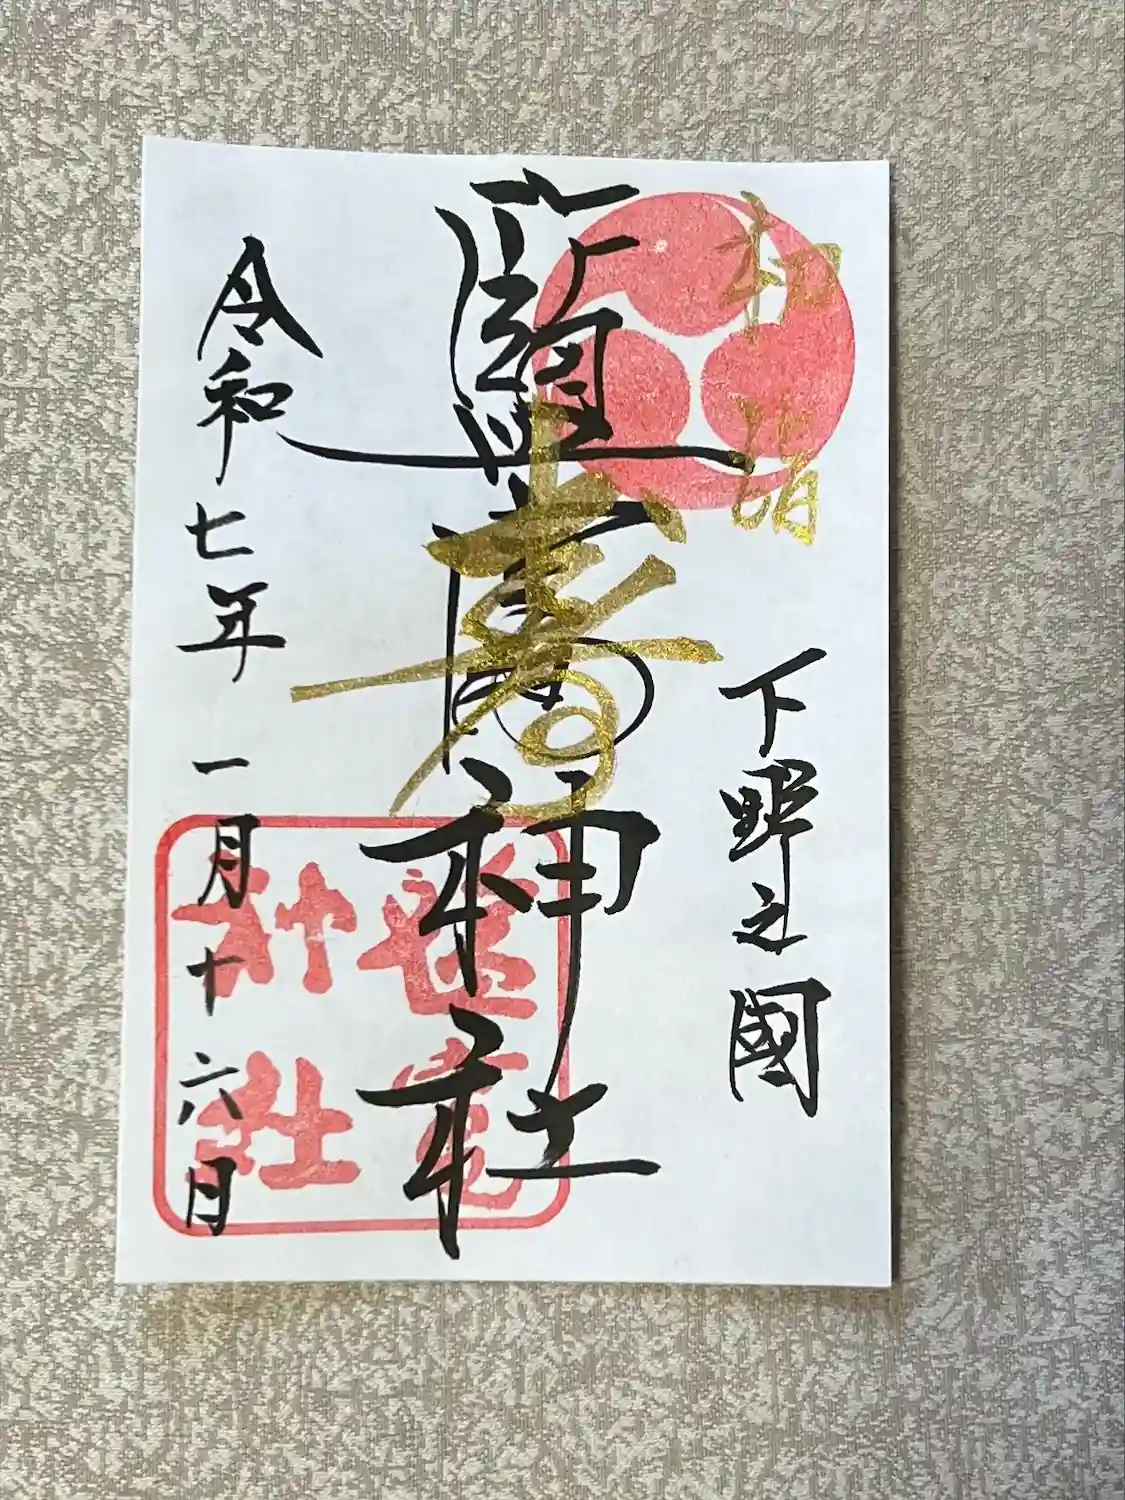 初詣
下野之國
鹽竈神社
寿
令和七年一月十六日
神社